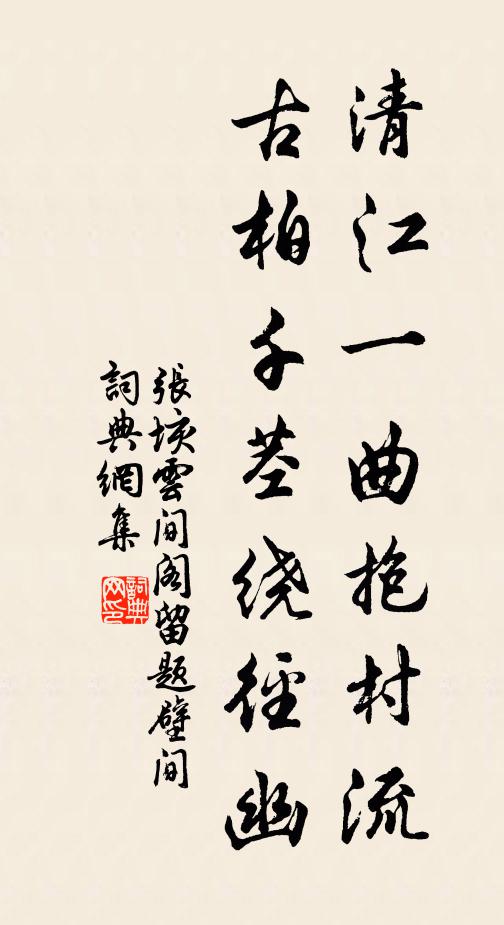 清江一曲抱村流
古柏千茎绕径幽
張垓雲间阁留题壁间
詞典網集
詞典网印